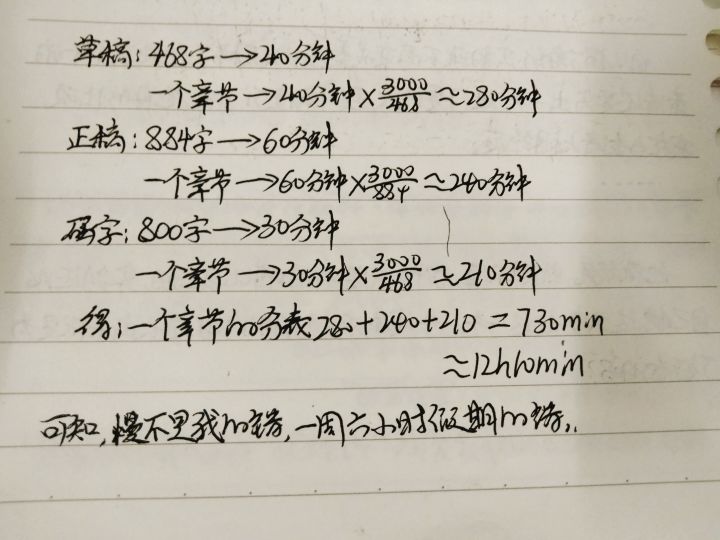 草稿：468字→40分钟
一个章节→40分钟×3000/468≈280分钟
正稿：884字→60分钟
一个章节→60分钟×3000/884≈240分钟
码字：800字→30分钟
一个章节→30分钟×3000/468≈210分钟
得：一个章节的 280+240+210=730min
≈12h10min
可知，慢不是我的错，一周六小时假期的错。